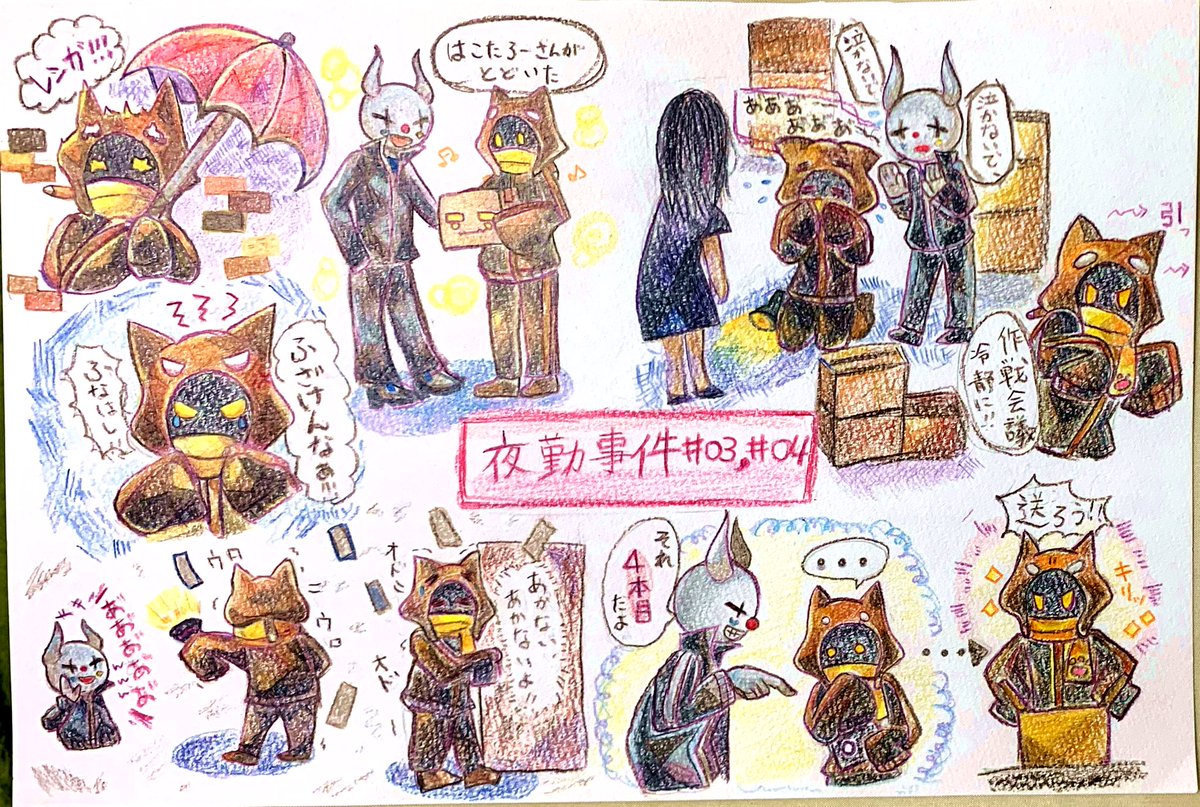 レンガ!!!
はこたろーさんが
とどいた
泣かないで
あああ
おおお
泣かないで
引
作戦会議
冷静に!!
ふざけんなぁ!!!
ふなはしぃ
夜勤事件#03,#04
ウロ
ウロ
オド
オド
あかない
あかないよ!!
それ
4本目
だよ
...
送ろう!!
キリッ